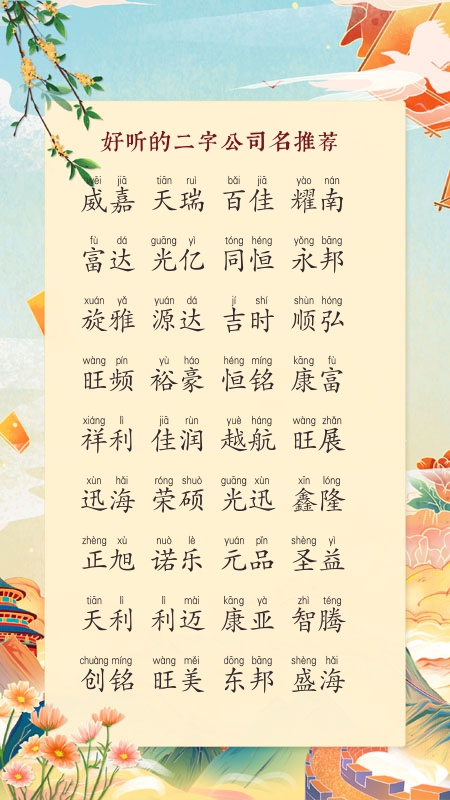 好听的二字公司名推荐
wēi jiā tiān ruì bǎi jiā yào nán
威嘉 天瑞 百佳 耀南
fù dá guāng yì tóng héng yǒng bāng
富达 光亿 同恒 永邦
xuán yǎ yuán dá jí shí shùn hóng
旋雅 源达 吉时 顺弘
wàng pín yù háo héng míng kāng fù
旺频 裕豪 恒铭 康富
xiáng lì jiā rùn yuè háng wàng zhǎn
祥利 佳润 越航 旺展
xùn hǎi róng shuò guāng xùn xīn lóng
迅海 荣硕 光迅 鑫隆
zhèng xù nuò lè yuán pǐn shèng yì
正旭 诺乐 元品 圣益
tiān lì lì mài kāng yà zhì téng
天利 利迈 康亚 智腾
chuàng míng wàng měi dōng bāng shèng hǎi
创铭 旺美 东邦 盛海